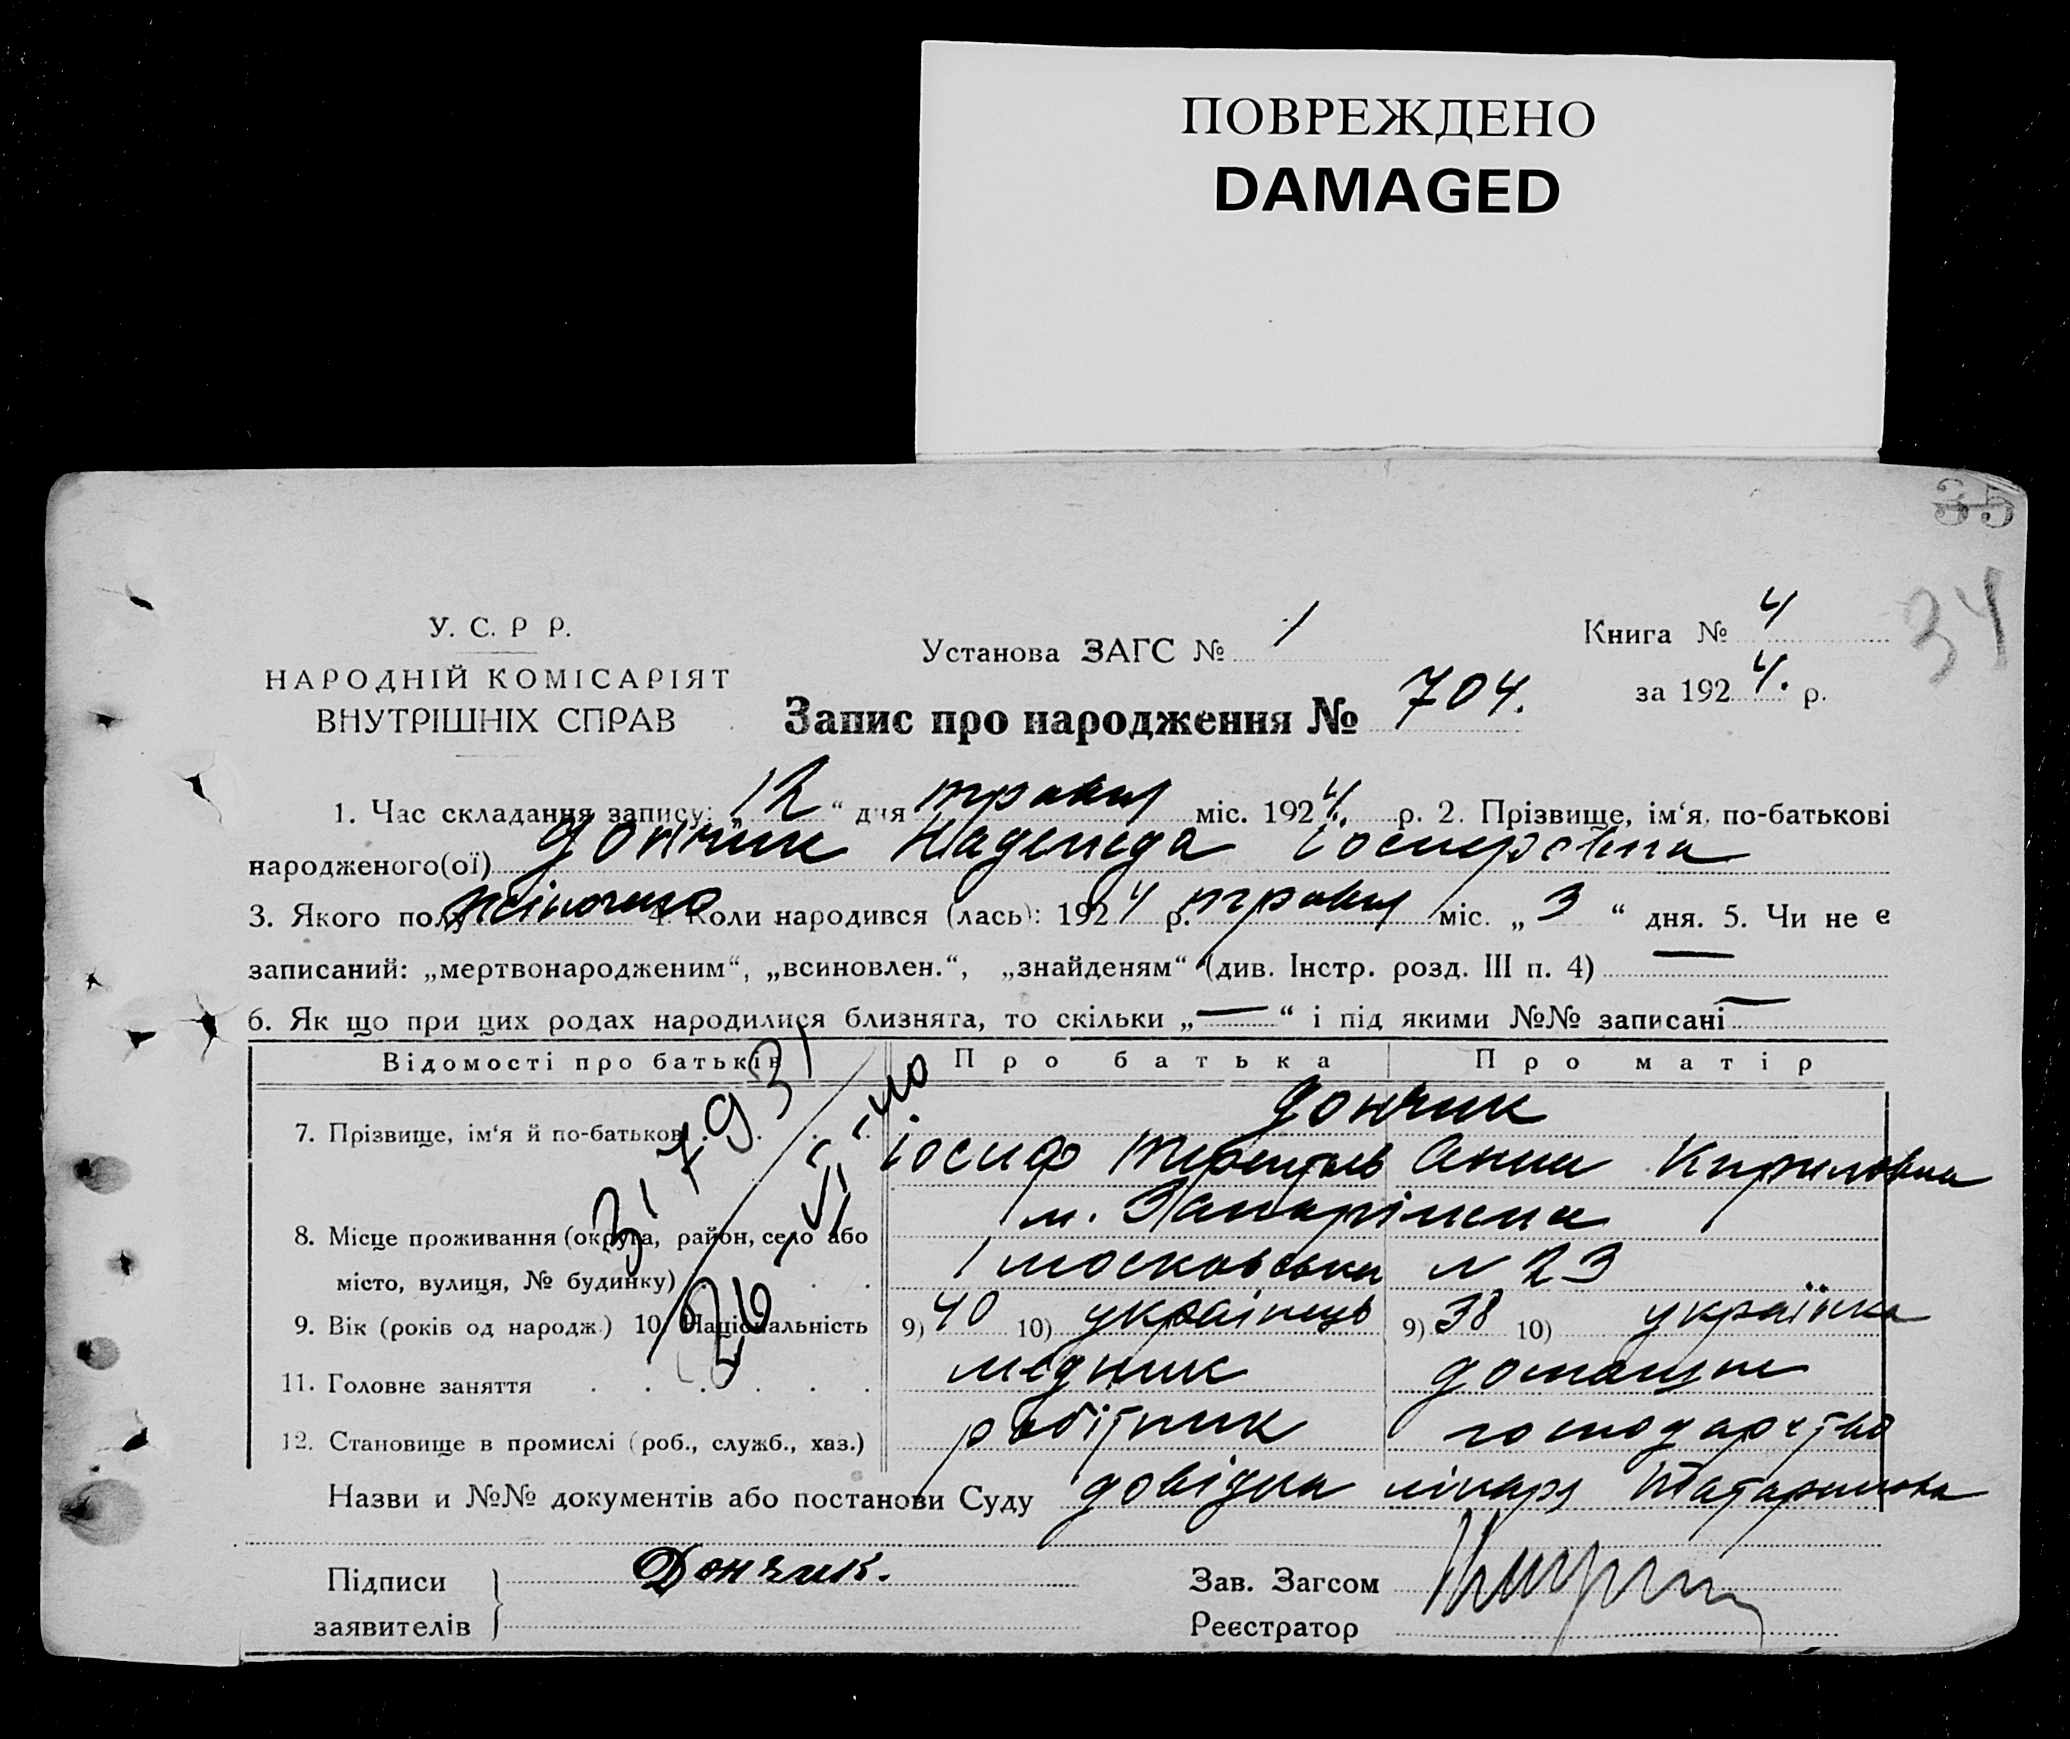 ПОВРЕЖДЕНО
DAMAGED
35
34
У. С. Р Р.
НАРОДНІЙ КОМІСАРІЯТ
ВНУТРІШНІХ СПРАВ
Установа ЗАГС № 1
Книга № 4
за 1924. р.
Запис про народження № 704.
1. Час складання запису: „12“ дня травня міс. 1924. р. 2. Прізвище, ім‘я, по-батькові
народженого(ої) Дончик Надежда Іосиф
3. Якого полу жіночого 4. Коли народився (лась): 1924 р. травня міс. „3“ дня. 5. Чи не є
записаний: „мертвонародженим“, „всиновлен.“, „знайденям“ (див. Інстр. розд. III п. 4) —
6. Як що при цих родах народилися близнята, то скільки „—“ і під якими №№ записані —
Відомості про батьків Про батька Про матір
7. Прізвище, ім‘я й по-батькові Дончик
Іосиф Анна Кириловна
8. Місце проживання (округа, район, село або м.
місто, вулиця, № будинку) Московська № 23
9. Вік (років од народж.) 10. Національність 9) 40 10) українець 9) 38 10) українка
11. Головне заняття медник домашнє
12. Становище в промислі (роб., служб., хаз.) робітник господарство
Назви и №№ документів або постанови Суду довідка лікаря
Підписи
заявителів
Дончик.
Зав. Загсом
Реєстратор